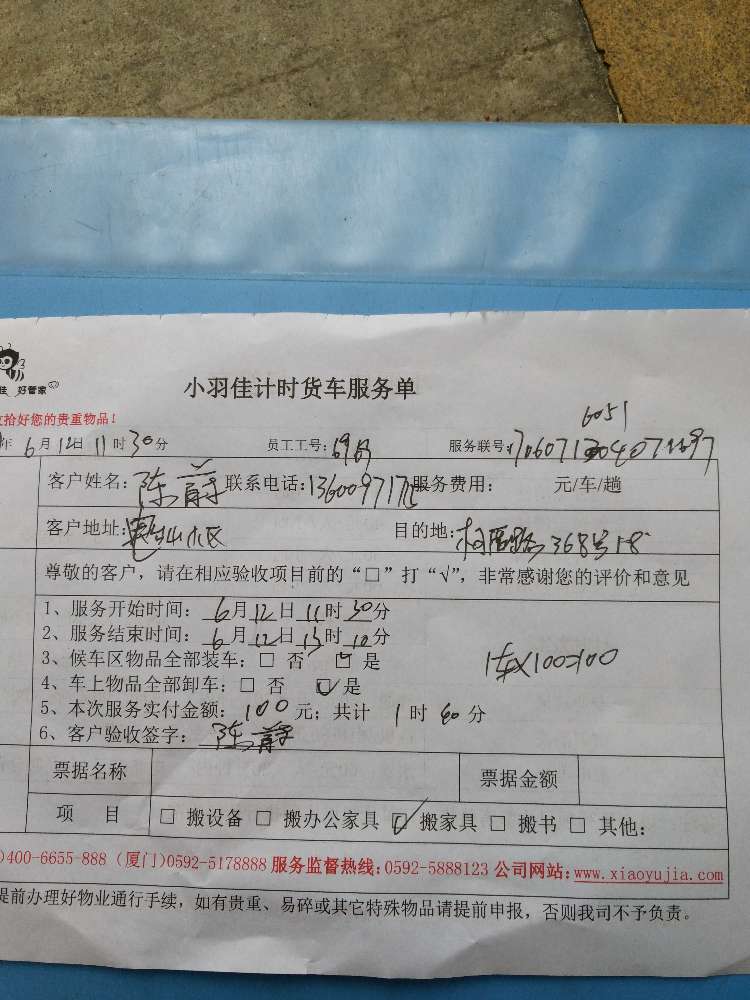 好管家
小羽佳计时货车服务单
拾好您的贵重物品！
6051
年 6月12日11时30分 员工工号： 服务联号：
客户姓名：陈 联系电话： 服务费用： 元/车/趟
客户地址： 目的地： 368号
尊敬的客户，请在相应验收项目前的“□”打“√”，非常感谢您的评价和意见
1、服务开始时间：6月12日11时30分
2、服务结束时间：6月12日13时10分
3、候车区物品全部装车：□ 否 □ 是
1车X100=100
4、车上物品全部卸车：□ 否 ☑ 是
5、本次服务实付金额：100元；共计 1时40分
6、客户验收签字：陈
票据名称 票据金额
项 目 □ 搬设备 □ 搬办公家具 ☑ 搬家具 □ 搬书 □ 其他：
)400-6655-888（厦门)0592-5178888 服务监督热线:0592-5888123 公司网站:www.xiaoyujia.com
提前办理好物业通行手续，如有贵重、易碎或其它特殊物品请提前申报，否则我司不予负责。